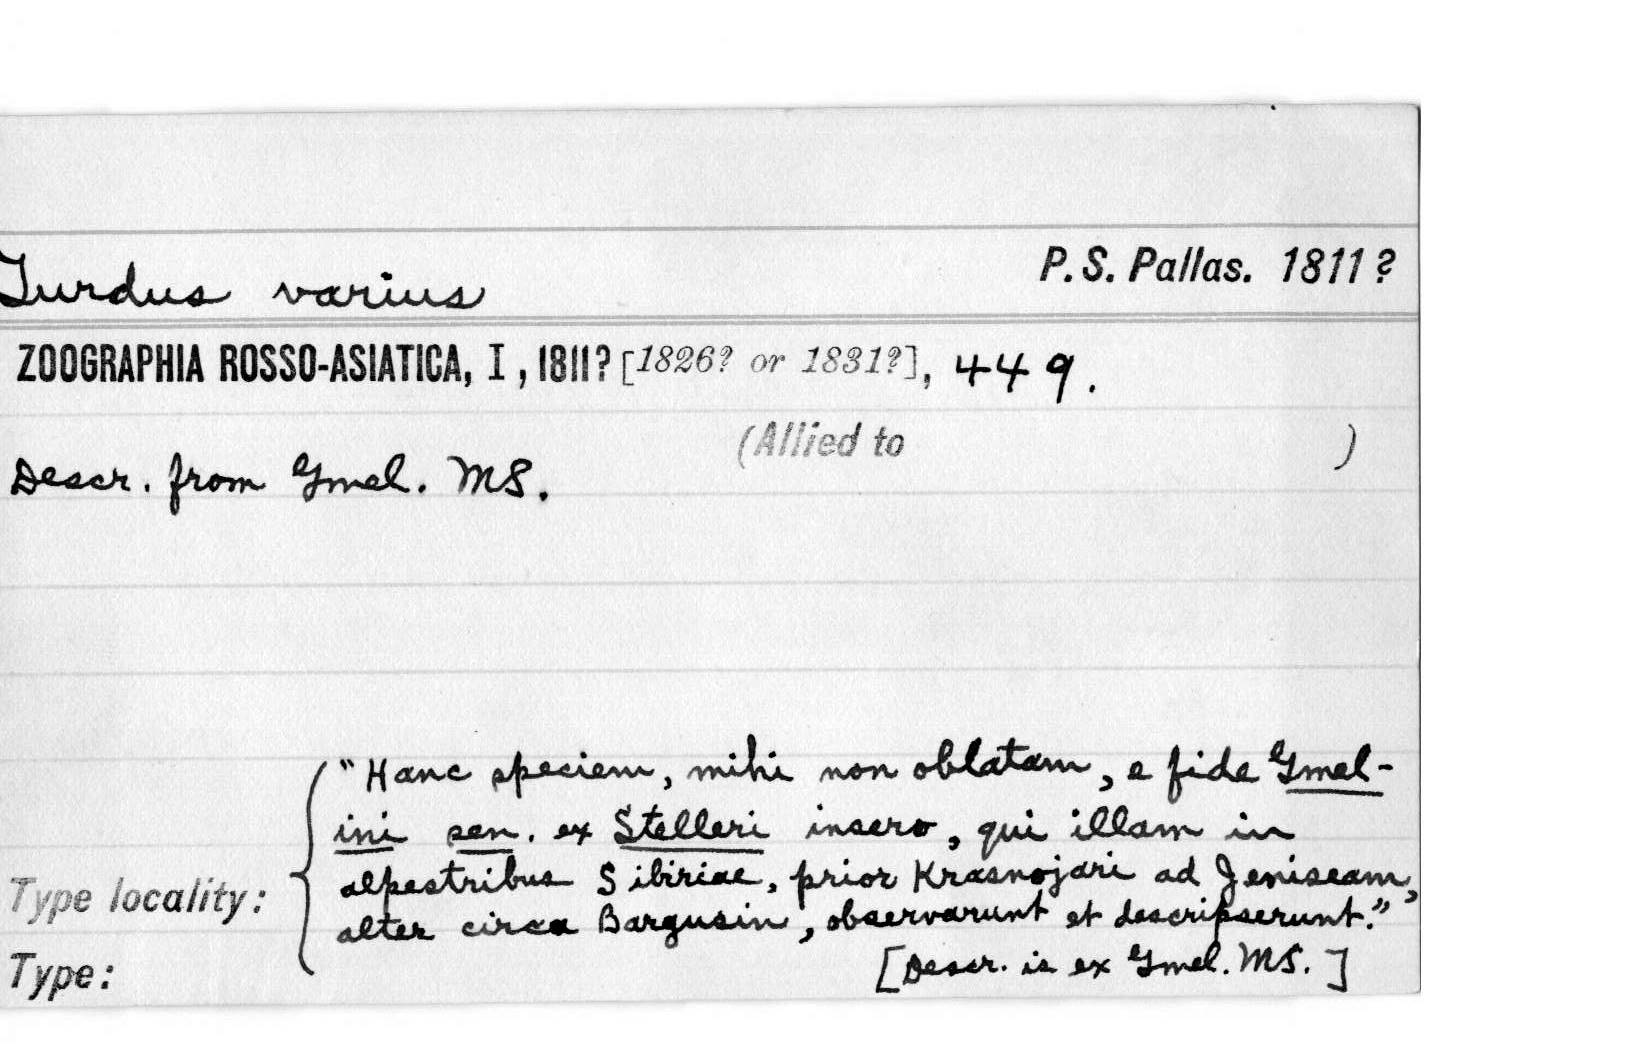 Turdus varius
P. S. Pallas. 1811?
ZOOGRAPHIA ROSSO-ASIATICA, I, 1811? [1826? or 1831?], 449.
(Allied to )
Descr. from Gmel. MS.
"Hanc speciem, mihi non oblatam, e fide Gmel-
ini sen. ex Stelleri insero, qui illam in
alpestribus Sibiriae, prior Krasnojari ad Jeniseam,
Type locality:
alter circa Bargusin, observarunt et descripserunt."
Type:
[Descr. is ex Gmel. MS.]